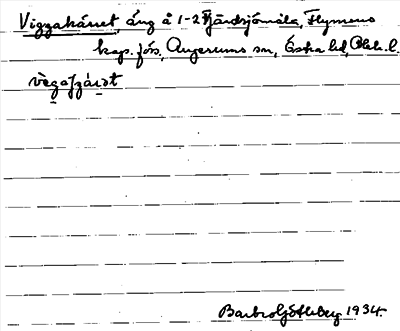 Viggahåret, äng å 1-2 Fjärdsjömåla, Flymens
kap. förs., Augerums sn, Östra hd, Blek. l.

Barbro Götheberg 1934.